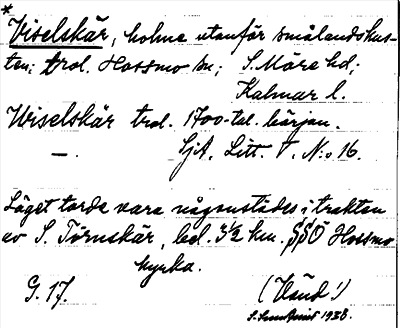 *
Viselskär, holme utanför smålandskus-
ten; trol. Hossmo sn; S. Möre hd;
Kalmar l.
Wiselskär trol. 1700-tal. början.
— SjA. Litt. V. N:o 16.
Läget torde vara någonstädes i trakten
av S. Törnskär, bel. 3½ km. SSÖ Hossmo
kyrka.
G. 17. (Vänd!)
1938.